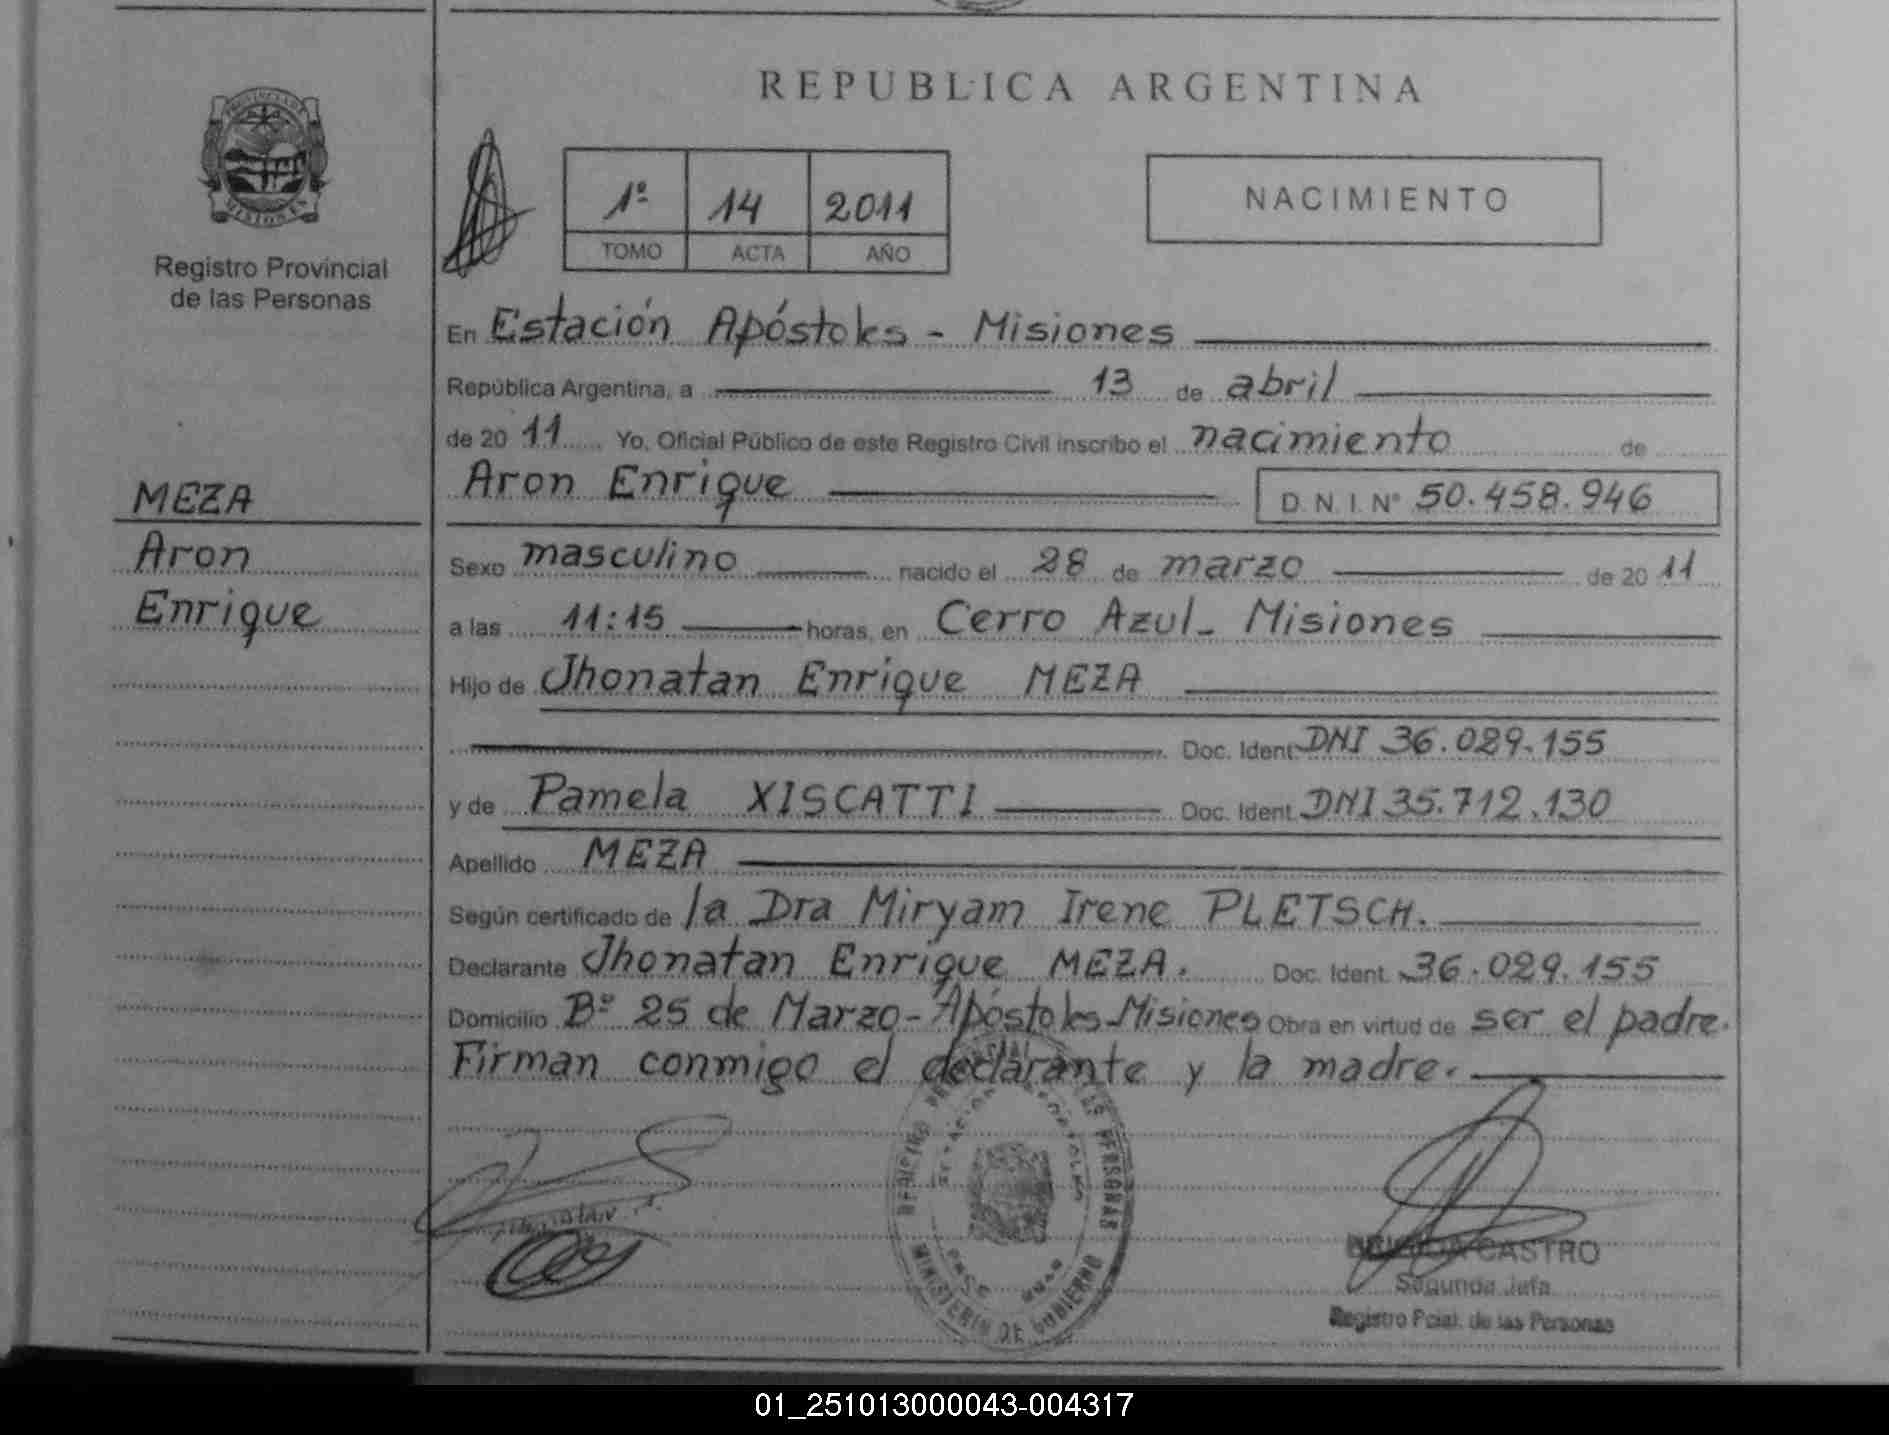 REPUBLICA ARGENTINA
PROVINCIA DE
MISIONES
Registro Provincial
de las Personas
1º 14 2011
TOMO ACTA AÑO
NACIMIENTO
En Estación Apóstoles - Misiones
República Argentina, a 13 de abril
de 20 11 Yo, Oficial Público de este Registro Civil inscribo el nacimiento de
Aron Enrique D.N.I. Nº 50.458.946
MEZA
Aron
Enrique
Sexo masculino nacido el 28 de marzo de 20 11
a las 11:15 horas, en Cerro Azul - Misiones
Hijo de Jhonatan Enrique MEZA
Doc. Ident. DNI 36.029.155
y de Pamela XISCATTI Doc. Ident. DNI 35.712.130
Apellido MEZA
Según certificado de la Dra Miryam Irene PLETSCH.
Declarante Jhonatan Enrique MEZA. Doc. Ident. 36.029.155
Domicilio Bº 25 de Marzo - Apóstoles - Misiones Obra en virtud de ser el padre.
Firman conmigo el declarante y la madre.
REGISTRO PROVINCIAL DE LAS PERSONAS
MINISTERIO DE GOBIERNO
CASTRO
Segunda Jefa
Registro Pcial. de las Personas
01_251013000043-004317